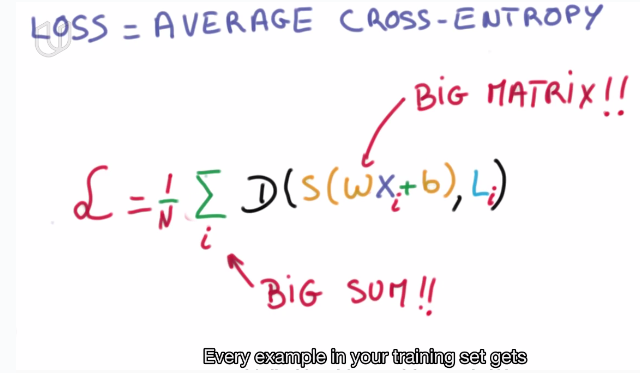 LOSS = AVERAGE CROSS-ENTROPY
BiG MATRiX!!
ℒ = 1/N Σ_i D(S(WX_i+b), L_i)
BiG SUM!!
Every example in your training set gets